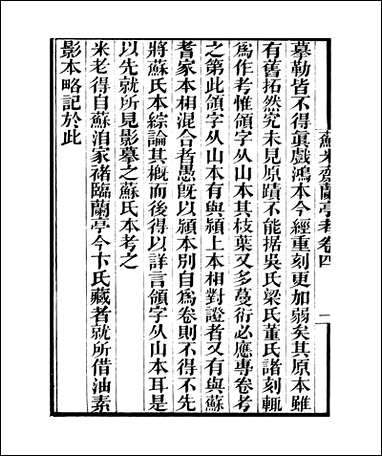 蘇米齋蘭亭考卷四 一
摹勒皆不得眞戲鴻本今經重刻更加弱矣其原本雖
有舊拓然究未見原蹟不能據吳氏梁氏董氏諸刻輒
爲作考惟領字从山本其枝葉又多蔓衍必應專卷考
之第此領字从山本有與潁上本相對證者又有與蘇
耆家本相混合者愚旣以潁本別自爲卷則不得不先
將蘇氏本綜論其槪而後得以詳言領字从山本耳是
以先就所見影摹之蘇氏本考之
米老得自蘇洎家褚臨蘭亭今卞氏藏者就所借油素
影本略記於此